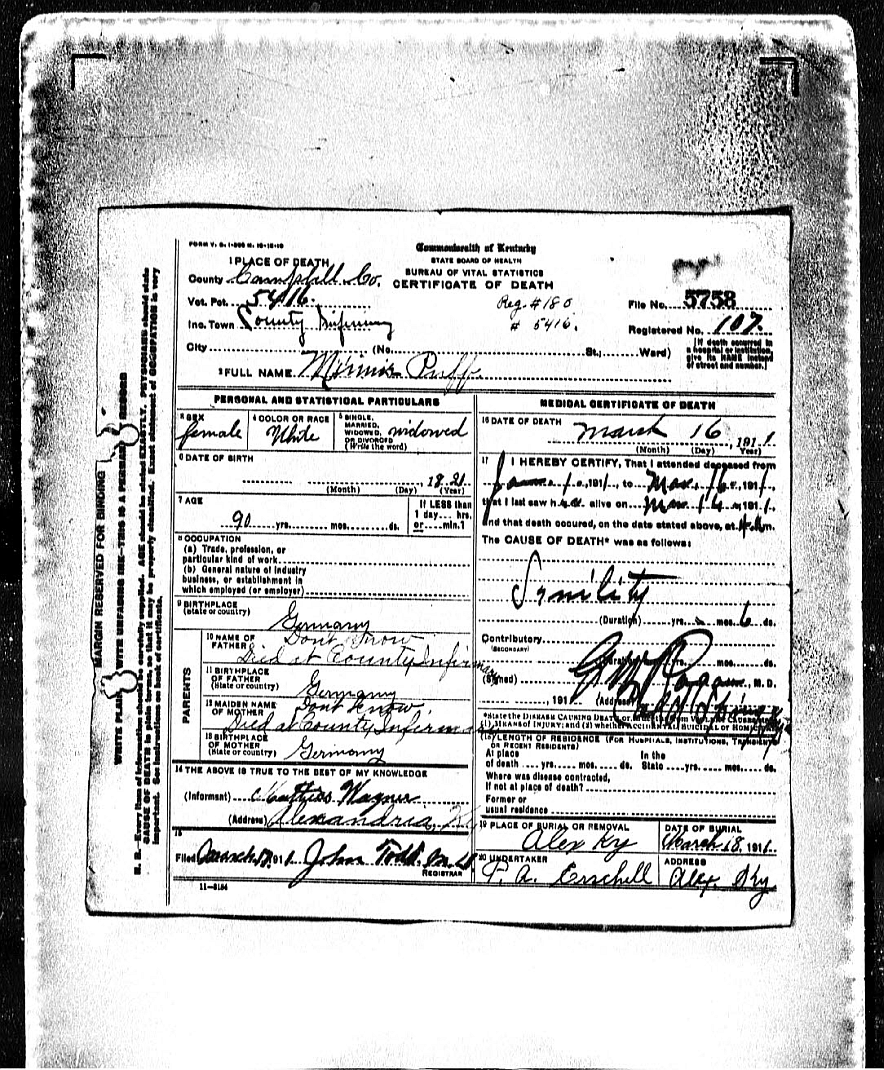 FORM V. S. 1
Commonwealth of Kentucky
STATE BOARD OF HEALTH
BUREAU OF VITAL STATISTICS
CERTIFICATE OF DEATH
1 PLACE OF DEATH
County Campbell Co.
Vot. Pct. 5416.
Inc. Town County Infirmary
City (No. St.; Ward)
Reg. #180
# 5416.
File No. 5758
Registered No. 107.
[If death occurred in a hospital or institution, give its NAME instead of street and number.]
2 FULL NAME Puff
PERSONAL AND STATISTICAL PARTICULARS
3 SEX
female
4 COLOR OR RACE
White
5 SINGLE, MARRIED, WIDOWED, OR DIVORCED (Write the word)
widowed
6 DATE OF BIRTH
, 1821
(Month) (Day) (Year)
7 AGE
90 yrs. mos. ds.
If LESS than 1 day hrs. or min.?
8 OCCUPATION
(a) Trade, profession, or particular kind of work
(b) General nature of industry business, or establishment in which employed (or employer)
9 BIRTHPLACE
(State or country)
Germany
PARENTS
10 NAME OF FATHER
Dont Know
Died at County Infirmary
11 BIRTHPLACE OF FATHER
(State or country)
Germany
12 MAIDEN NAME OF MOTHER
Dont Know.
Died at County Infirmary
13 BIRTHPLACE OF MOTHER
(State or country)
Germany
14 THE ABOVE IS TRUE TO THE BEST OF MY KNOWLEDGE
(Informant) Wagner
(Address) Alexandria, Ky
15
Filed March 17, 1911 John Todd M.D.
REGISTRAR
11—3184
MEDICAL CERTIFICATE OF DEATH
16 DATE OF DEATH
March 16, 1911
(Month) (Day) (Year)
17 I HEREBY CERTIFY, That I attended deceased from
, 1911, to Mar. 16, 1911,
that I last saw her alive on Mar 14, 1911,
and that death occured, on the date stated above, at m.
The CAUSE OF DEATH* was as follows:
Senility
(Duration) yrs. mos. 6 ds.
Contributory
(SECONDARY)
(Duration) yrs. mos. ds.
(Signed) , M. D.
, 191 (Address)
*State the DISEASE CAUSING DEATH, or, in deaths from VIOLENT CAUSES, state (1) MEANS OF INJURY; and (2) whether ACCIDENTAL, SUICIDAL or HOMICIDAL
18 LENGTH OF RESIDENCE (FOR HOSPITALS, INSTITUTIONS, TRANSIENTS OR RECENT RESIDENTS)
At place of death yrs. mos. ds. In the State yrs. mos. ds.
Where was disease contracted, if not at place of death?
Former or usual residence
19 PLACE OF BURIAL OR REMOVAL
Alex Ky
DATE OF BURIAL
March 18, 1911.
20 UNDERTAKER
ADDRESS
Alex. Ky
MARGIN RESERVED FOR BINDING
WRITE PLAINLY WITH UNFADING INK—THIS IS A PERMANENT RECORD
N. B.—Every item of information should be carefully supplied. AGE should be stated EXACTLY. PHYSICIANS should state
CAUSE OF DEATH in plain terms, so that it may be properly classified. Exact statement of OCCUPATION is very
important. See instructions on back of certificate.